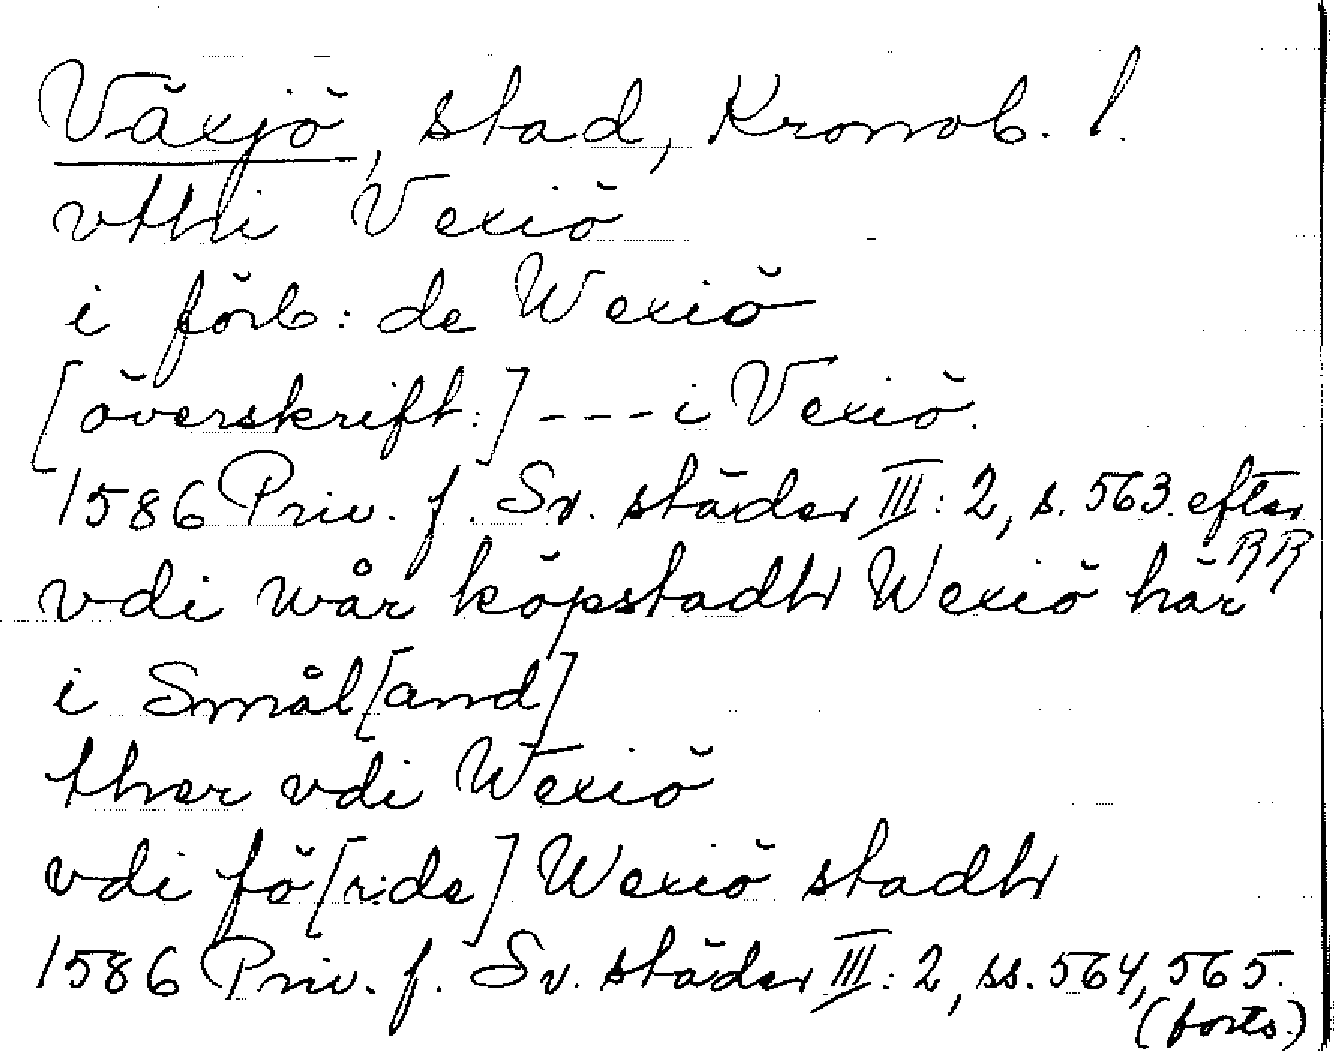 Växjö, stad, Kronob. l.
vthi Vexiö
i förb: de Wexiö
[överskrift:] --- i Vexiö.
1586 Priv. f. Sv. städer III: 2, s. 563. efter RR
vdi wår köpstadh Wexiö här
i Smål[and]
ther vdi Wexiö
vdi fö[r:de] Wexiö stadh
1586 Priv. f. Sv. städer III: 2, ss. 564, 565.
(forts.)